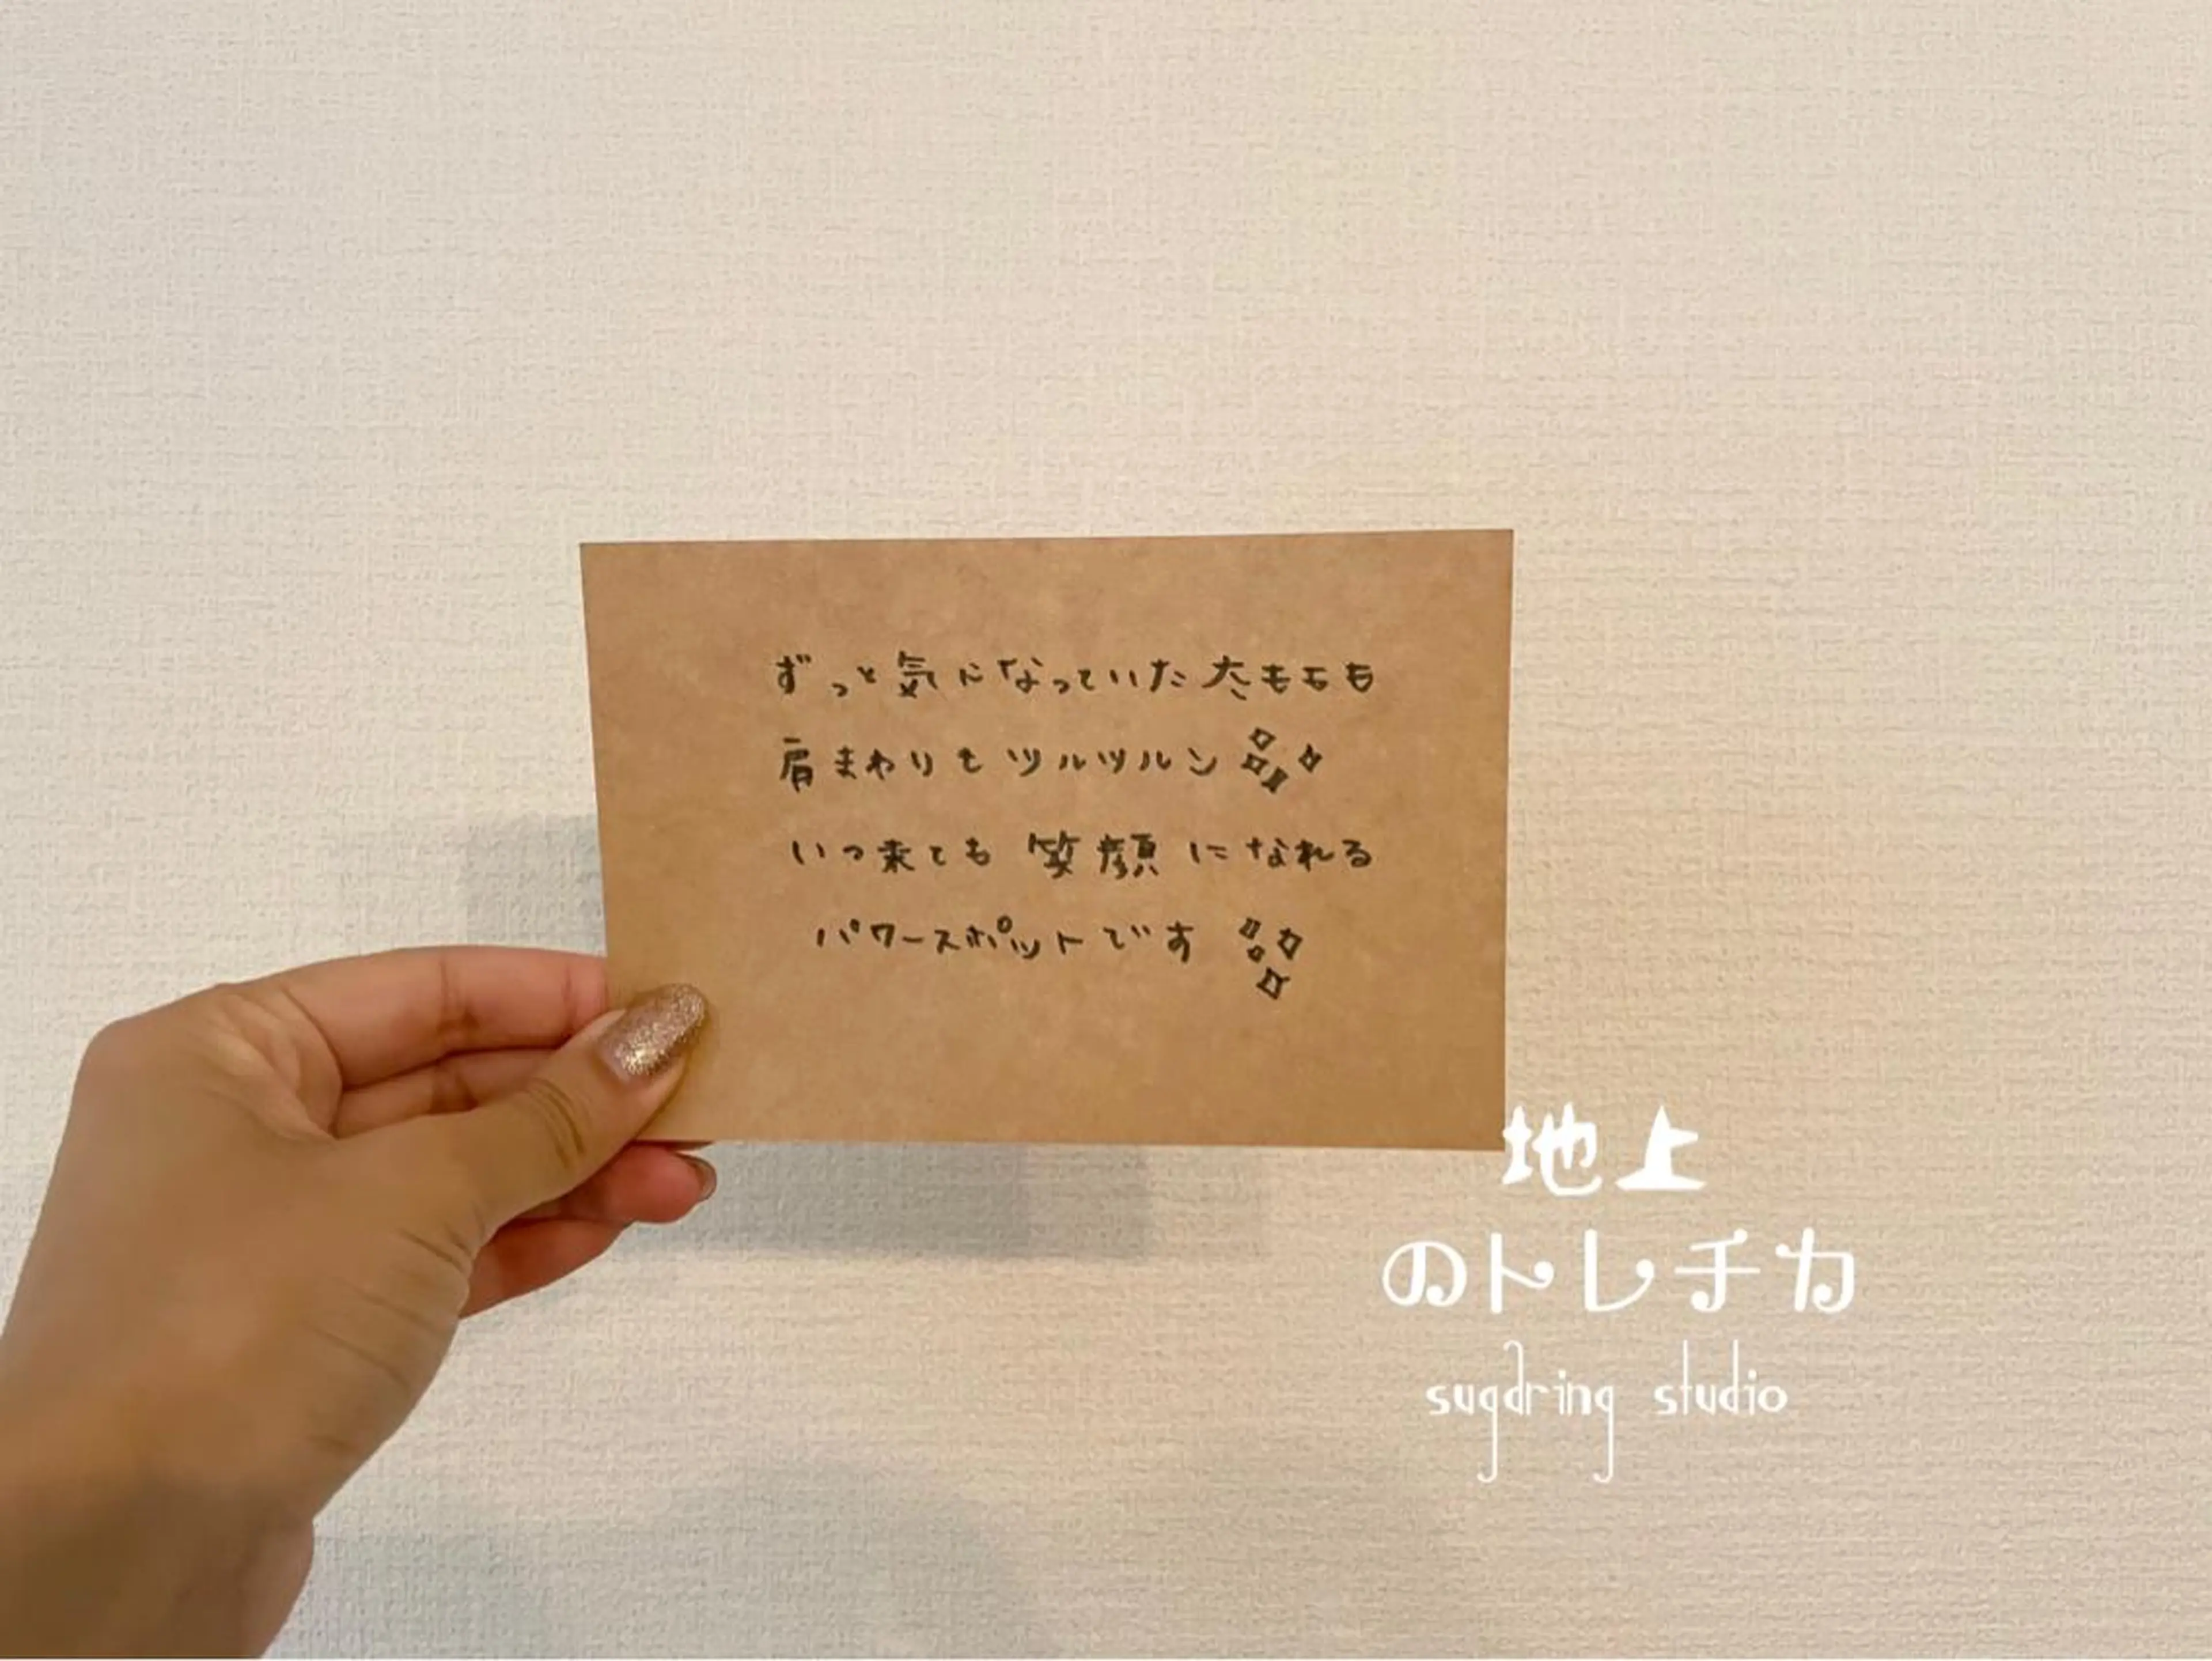 ずっと気になっていた太ももも
肩まわりもツルツルン
いつ来ても笑顔になれる
パワースポットです
地上
のトレチカ
sugaring studio